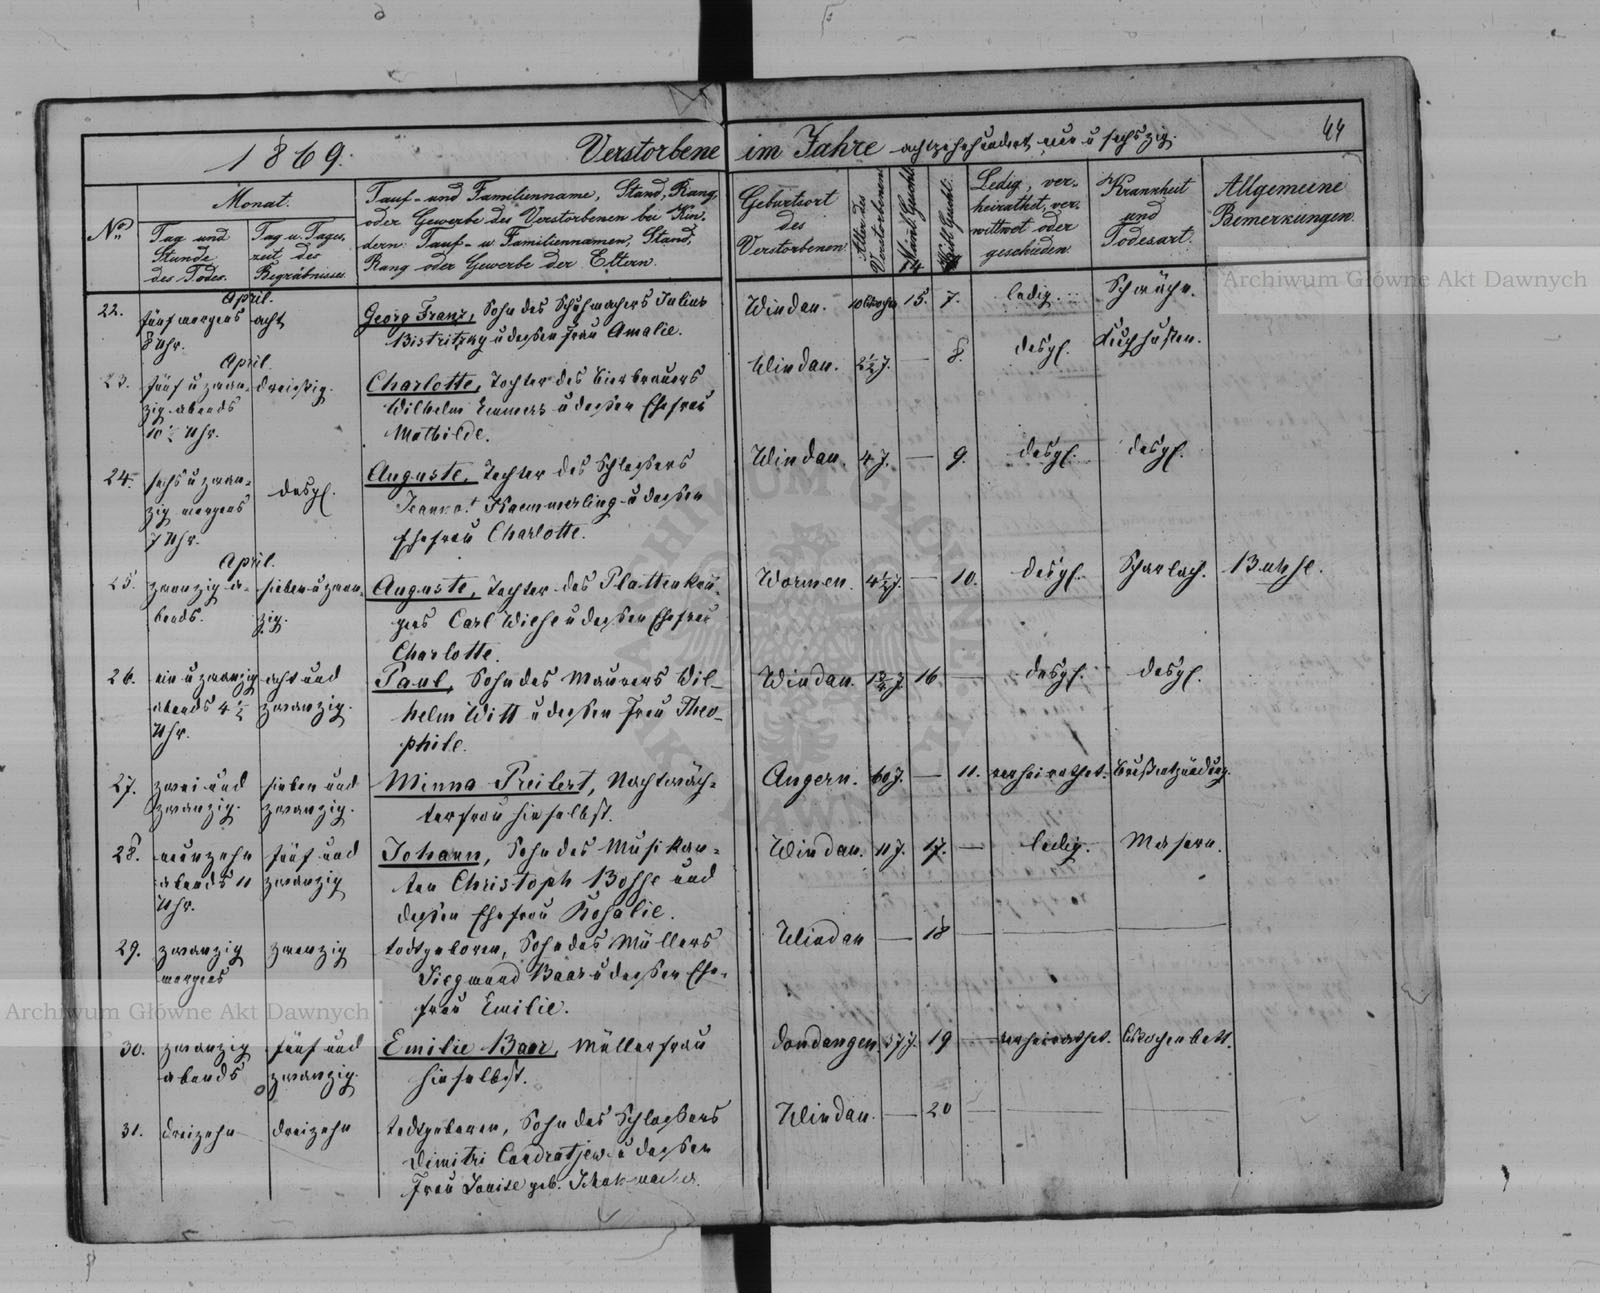 44
1869. Verstorbene im Jahre achtzehnhundert neun u sechszig.
No.
Monat.
Tag und Stunde des Todes.
Tag u. Tages, zeit, des Begräbnisses
Tauf- und Familienname, Stand, Rang,
oder Gewerbe des Verstorbenen bei Kin,
dern: Tauf- u Familiennamen, Stand,
Rang oder Gewerbe der Eltern.
Geburtsort
des
Verstorbenen
Alter des Verstorbenen
Mänl. Geschl.
14
Weibl. Geschl.
Ledig, ver-
heirathet, ver-
wittwet oder
geschieden.
Krannheit
und
Todesart.
Allgemeine
Bemerkungen.
April.
22. fünf morgens acht Georg Franz, Sohn des Schuhmachers Julius Windau. 15. 7. ledig. Schwäche.
8 Uhr. Bistritzky u dessen Frau Amalie.
April.
23. fünf u zwan- dreißig. Charlotte, Tochter des Bierbrauers Windau. 2½ J. — 8. desgl. Keuchhusten.
zig abends Wilhelm Emmers u dessen Ehefrau
10½ Uhr. Mathilde.
24. sechs u zwan- desgl. Auguste, Tochter des Schlossers Windau. 4 J. — 9. desgl. desgl.
zig morgens Kaemmerling u dessen
7 Uhr. Ehefrau Charlotte.
April.
25. zwanzig a- sieben u zwan- Auguste, Tochter des Wormen. 4½ J. — 10. desgl. Scharlach.
bends. zig. Carl u dessen Ehefrau
Charlotte.
26. ein u zwanzig acht und Paul, Sohn des Maurers Wil- Windau. 16 — desgl. desgl.
abends 4½ zwanzig. helm Witt u dessen Frau Theo-
Uhr. phile.
27. zwei und sieben und Minna Preilert, Nachtwäch- Angern. 60 J. — 11. verheirathet. Brustentzündung.
zwanzig. zwanzig. terfrau hieselbst.
28. neunzehn fünf und Johann, Sohn des Musikan- Windau. 11 J. 17. — ledig. Masern.
abends 11 zwanzig ten Christoph Bosse und
Uhr. dessen Ehefrau Rosalie.
29. zwanzig zwanzig todtgeboren, Sohn des Müllers Windau — 18 — — —
morgens Siegmund Baar u dessen Ehe-
frau Emilie.
30. zwanzig fünf und Emilie Baar, Müllerfrau Dondangen. 37 J. 19 — verheirathet. Wochenbett.
abends zwanzig. hieselbst.
31. dreizehn dreizehn todtgeboren, Sohn des Schlossers Windau. — 20 — — —
Dimitri Condratjew u dessen
Frau Louise geb.
Archiwum Główne Akt Dawnych
Archiwum Główne Akt Dawnych
ARCHIWUM GŁÓWNE AKT DAWNYCH